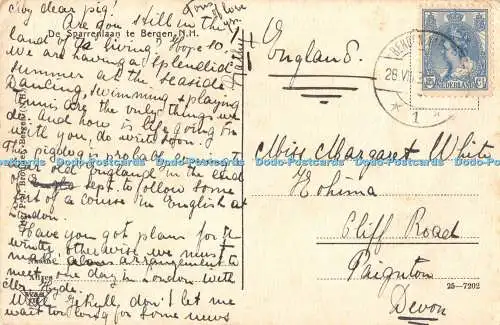 My dear pig!
Are you still in the
land of the living? Hope so!
We are having a splendid
summer at the seaside
Dancing, swimming & playing
tennis are the only things we
do. And how is life going on
with you, do write soon!
The pigwig is probably coming to
dear old England in the end
of sept. to follow some
sort of a course in English at
London.
Have you got plans for the
winter, otherwise we must
make an arrangement to
meet one day in London with
Mr. Hyde.
Well Jekyll, don't let me
wait too long for some news
Lots of love
De Sparrenlaan te Bergen, N.H.
England.
Miss Margaret White
Kohima
Cliff Road
Paignton
Devon
25-7202
NEDERLAND
Domodo-Postcards